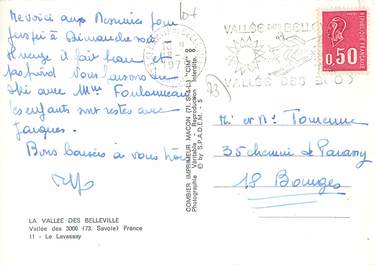 Me voici aux Menuires pour
jusqu'à Dimanche soir
Il neige il fait froid et
malgré cela nous faisons du
Ski avec Mme Foulonneau
les enfants sont restés avec
Jacques.
Bons baisers à vous trois
LA VALLEE DES BELLEVILLE
Vallée des 3000 (73. Savoie) France
11 - Le Lavassay
COMBIER IMPRIMEUR MACON (71.S-&-L) "CIM"
Photographie Véritable - Reproduction Interdite.
© by S.P.A.D.E.M. - S
VALLÉE DES BELLEVILLE
VALLÉE DES 3000
0,50
73
Mr et Me
35 chemin de
18 Bourges